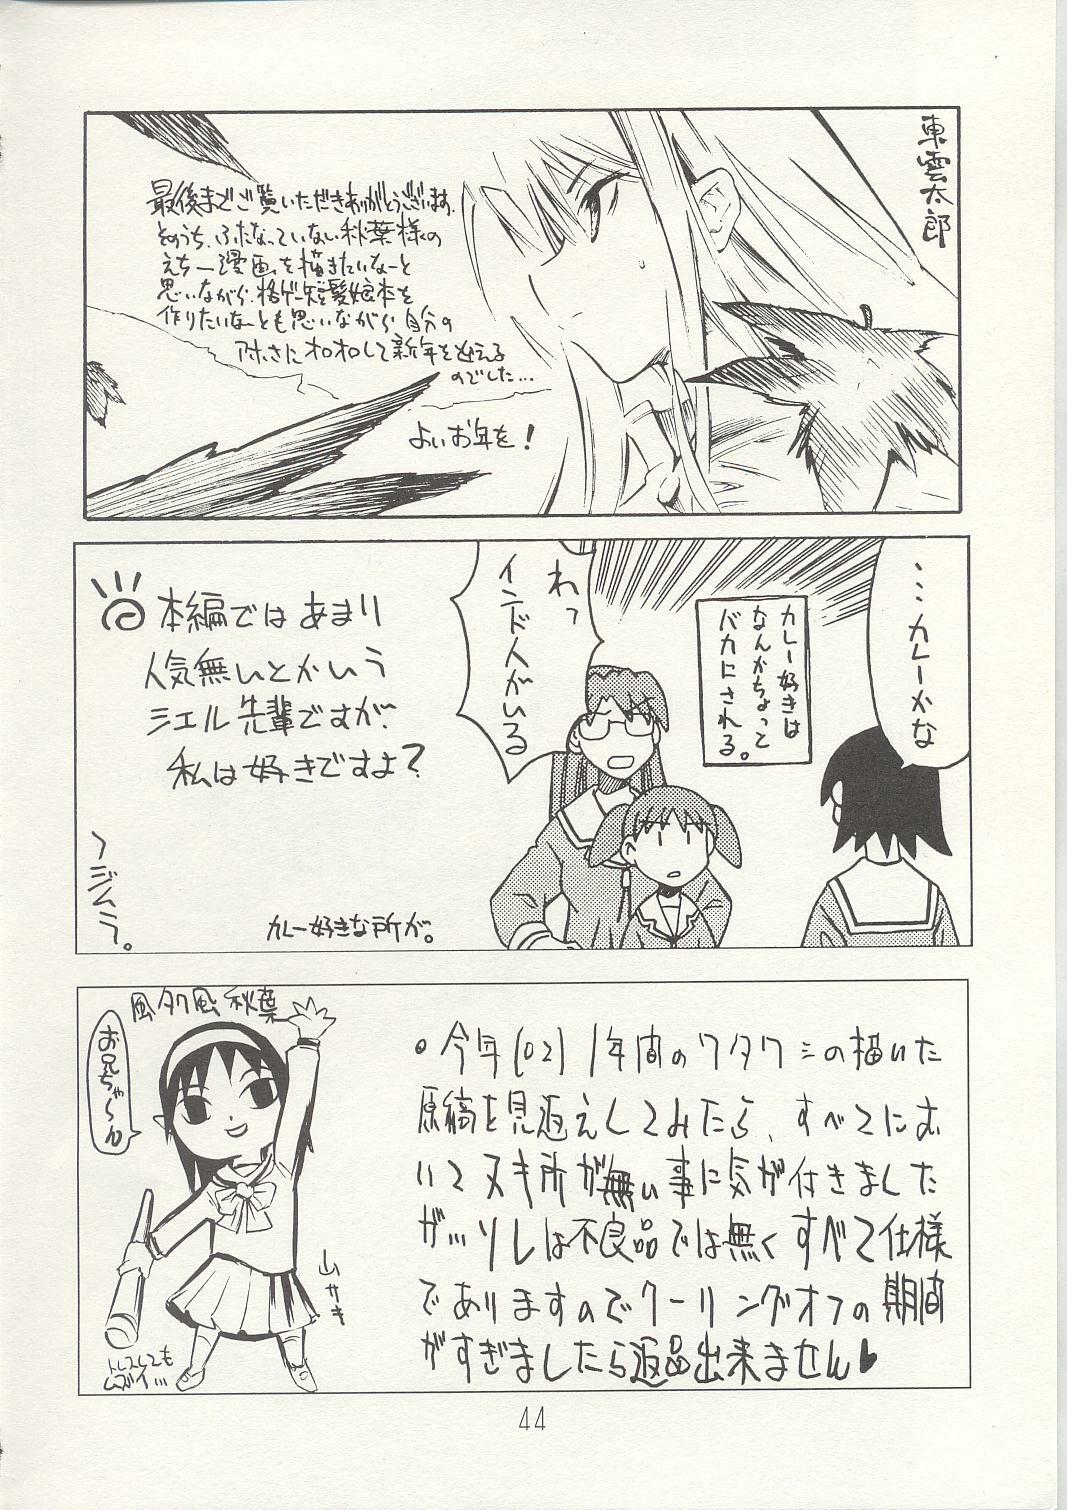 東雲太郎
最後までご覧いただきありがとうございます。
そのうち、ふたなっていない秋葉様の
えちー漫画を描きたいなーと
思いながら、格ゲー短髪娘本を
作りたいなーとも思いながら自分の
アホさにオロオロして新年を迎える
のでした…
よいお年を!
…カレーかな
カレー好きは
なんかちょって
バカにされる。
わっ
インド人がいる
本編ではあまり
人気無いとかいう
シエル先輩ですが、
私は好きですよ?
カレー好きな所が。
〜ジムラ。
風タク風秋葉
お兄ちゃ〜ん
山サキ
トレスしても
ムズイ…
•今年(02)1年間のワタクシの描いた
原稿を見返えしてみたら、すべてにお
いてヌキ所が無い事に気が付きました
が…ソレは不良品では無くすべて仕様
でありますのでクーリングオフの期間
がすぎましたら返品出来ません♥
44